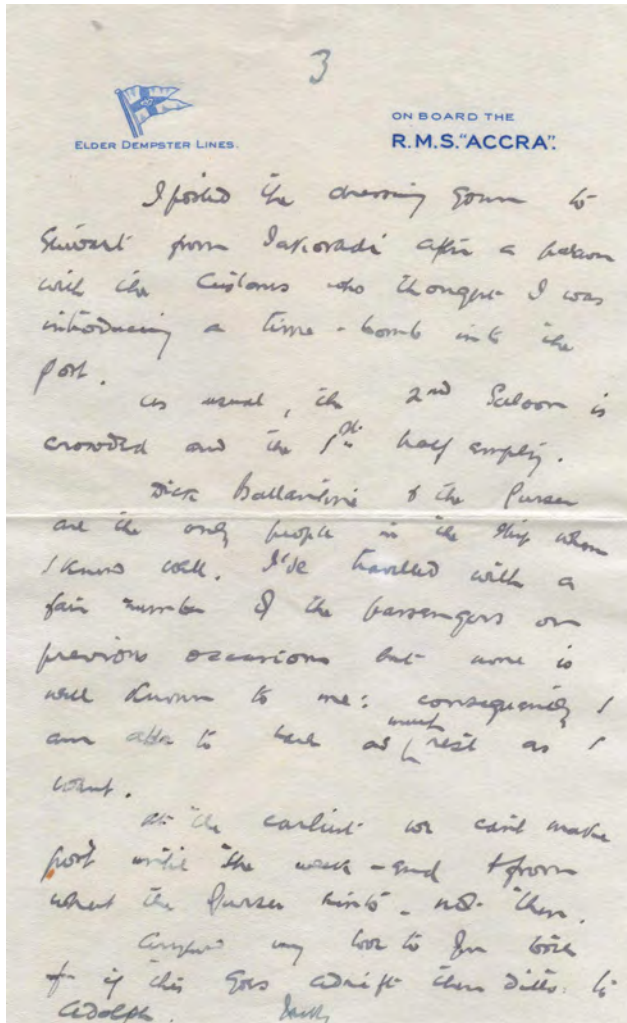 3
ELDER DEMPSTER LINES.
ON BOARD THE
R.M.S. "ACCRA".
I posted the dressing gown to
Stewart from Takoradi after a
with the Customs who thought I was
introducing a time-bomb into the
port.
As usual, the 2nd Saloon is
crowded and the 1st half empty.
Dick Ballantine & the Purser
are the only people in the ship whom
I know well. I've travelled with a
fair number of the passengers on
previous occasions but none is
well known to me: consequently I
am able to have as much rest as I
want.
At the earliest we can't make
port until the week-end & from
what the Purser hints - not then.
my love to you both
& if this goes adrift then ditto to
Adolph. Jack